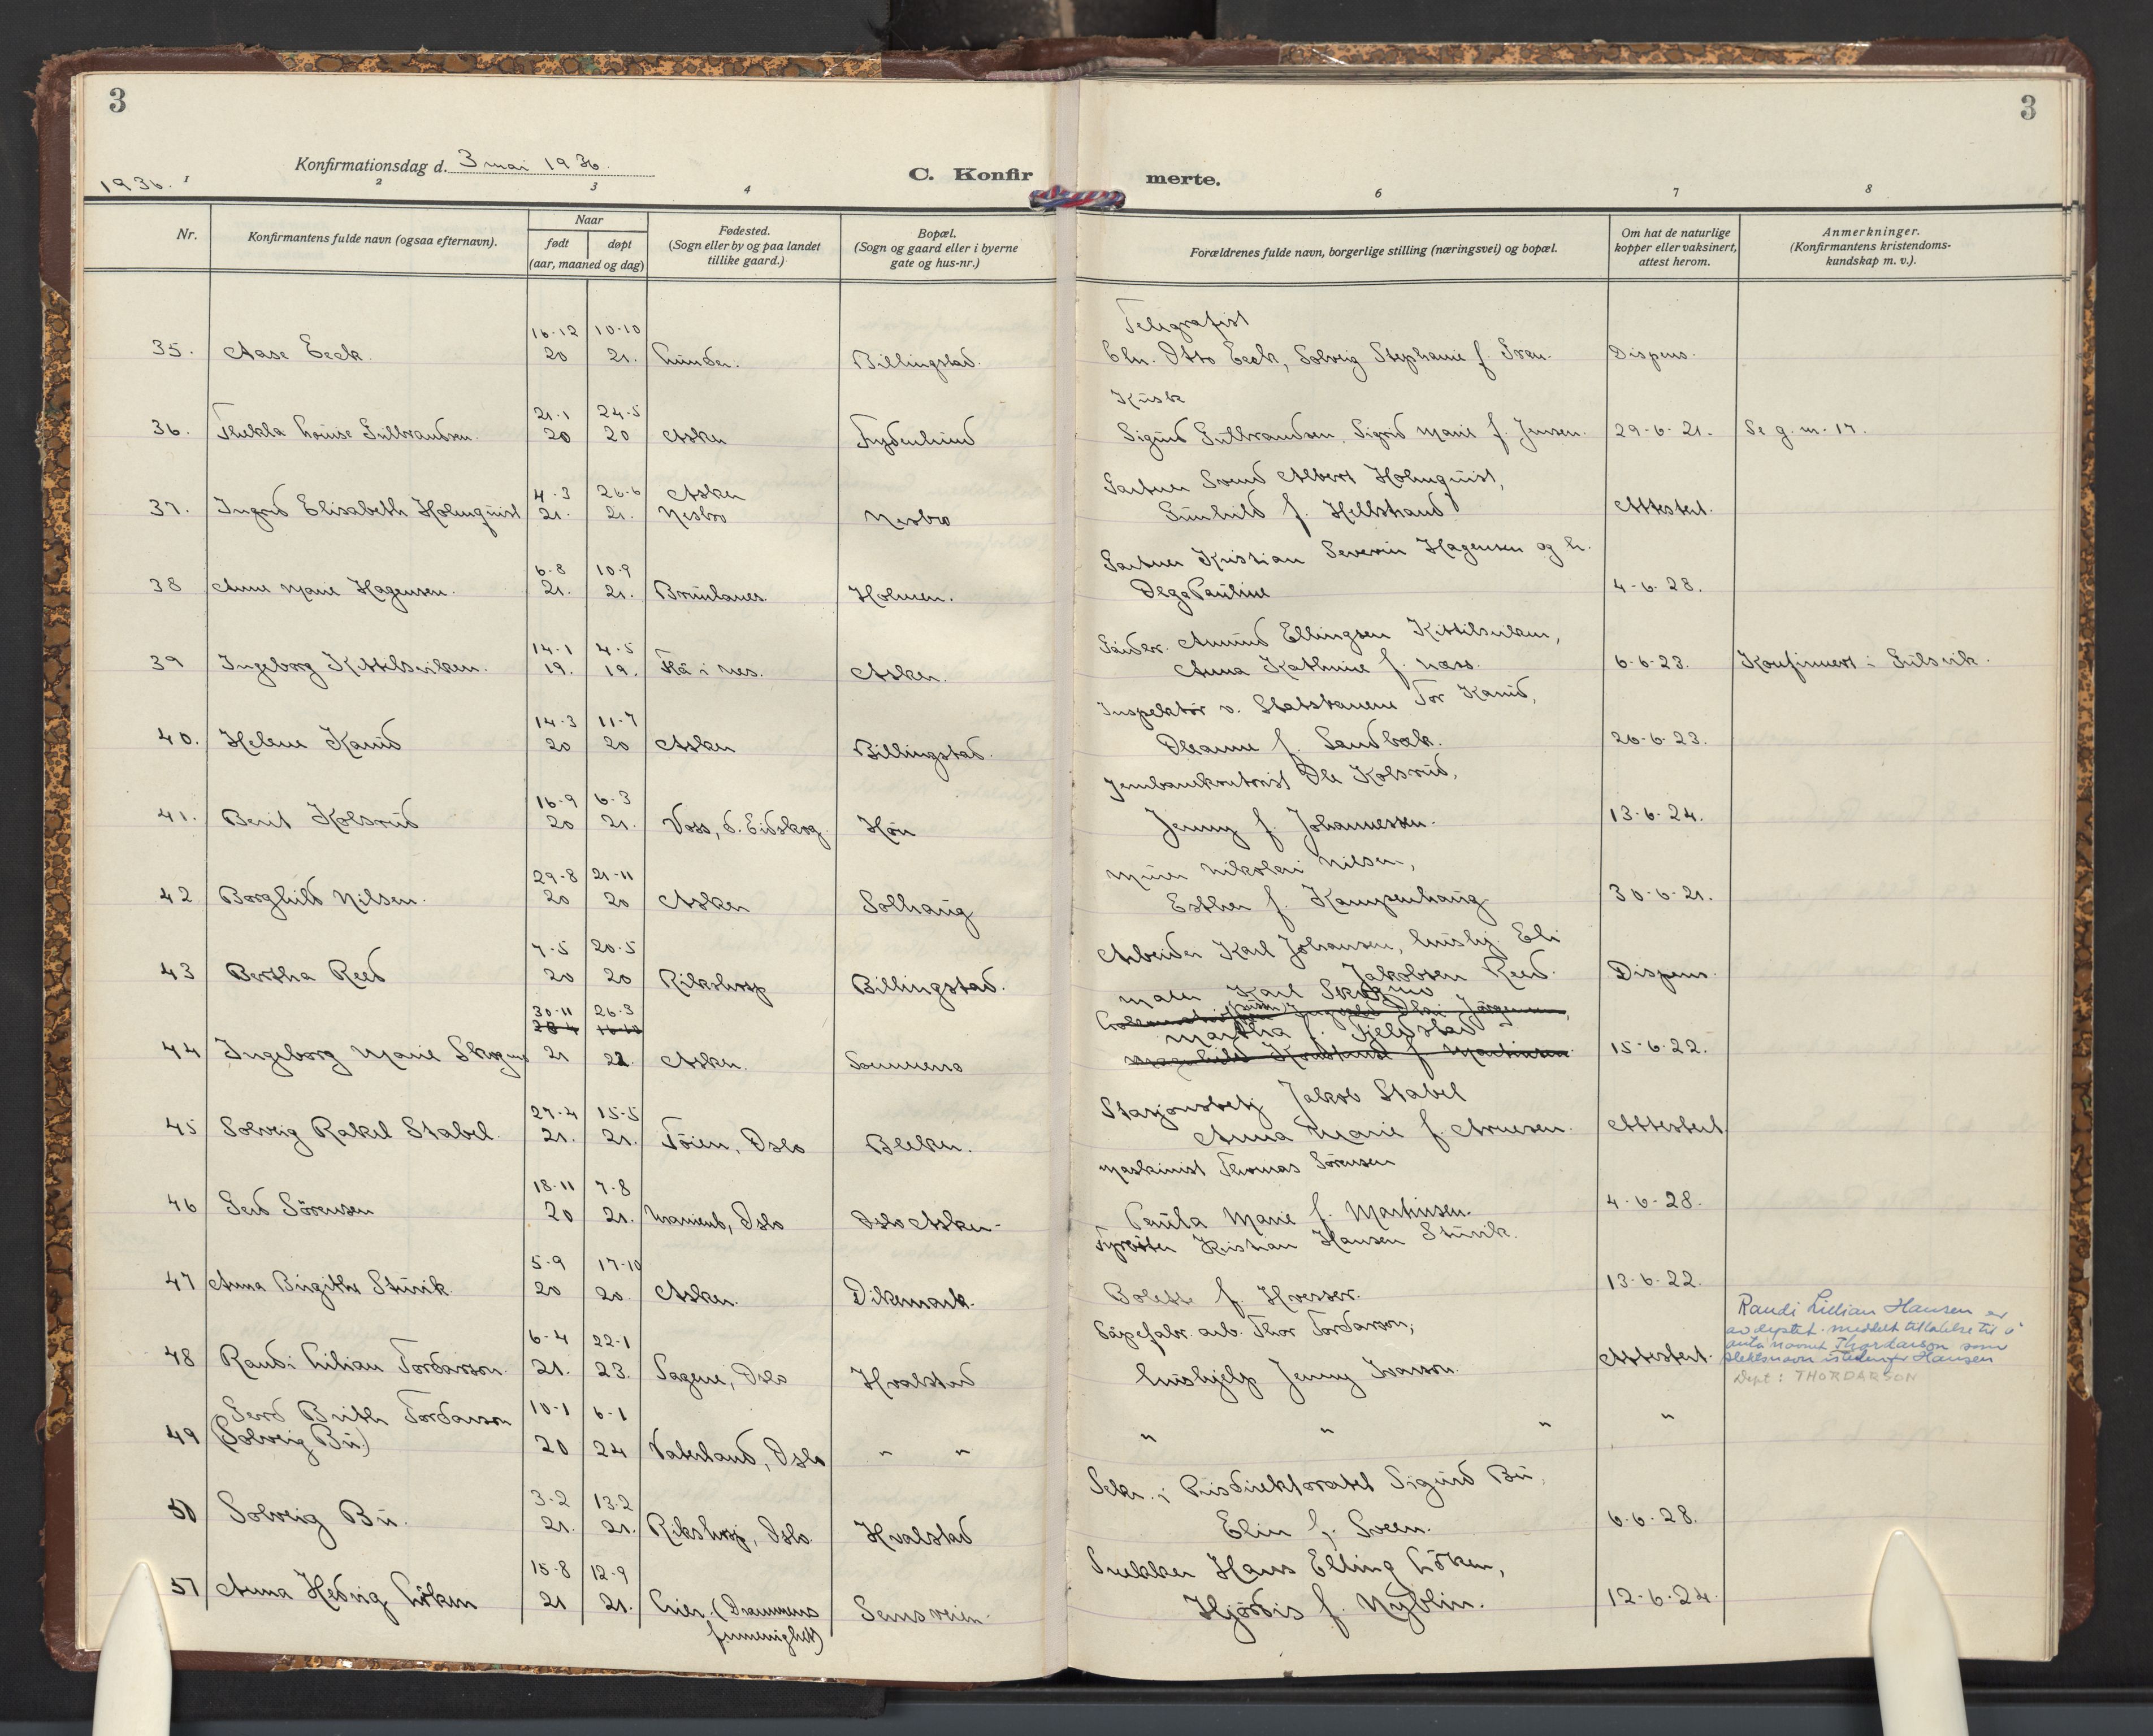 3
3
Konfirmationsdag d. 3 mai 1936.
C. Konfirmerte.
1936.
1 2 3 4 6 7 8
Nr.
Konfirmantens fulde navn (ogsaa efternavn).
Naar
født døpt
(aar, maaned og dag)
Fødested.
(Sogn eller by og paa landet
tillike gaard.)
Bopæl.
(Sogn og gaard eller i byerne
gate og hus-nr.)
Forældrenes fulde navn, borgerlige stilling (næringsvei) og bopæl.
Om hat de naturlige
kopper eller vaksinert,
attest herom.
Anmerkninger.
(Konfirmantens kristendoms-
kundskap m. v.).
16-12 10-10 Telegrafist
35. Aase Eeck. 20 21. Lunder. Billingstad. Chr. Otto Eeck, Solveig Stephanie f. Dispens.
21-1 24-5 Kusk
36. Thekla Louise Gulbrandsen. 20 20 Asker Frydenlund Sigurd Gulbrandsen, Sigrid Marie f. Jensen. 29-6-21. Se g. m. 17.
4-3 26-6 Asker Gartner Svend Albert Holmquist,
37. Ingrid Elisabeth Holmquist 21. 21. Nesbro Nesbro Gunhild f. Hellstrand Attestert.
6-8 10-9 Gartner Kristian Severin Hagensen og h.
38 Anne Marie Hagensen. 21. 21. Brunlanes Holmen. Olga Pauline 4-6-28.
14-1 4-5 Gårdbr. Amund Ellingsen Kittilsviken,
39 Ingeborg Kittilsviken. 19. 19. Flå i Nes. Asker. Anna Kathrine f. Næss. 6-6-23. Konfirmert i Gulsvik.
14-3 11-7 Inspektør v. Statsbanene Tor Kanid,
40. Helene Kanid 20 20 Asker Billingstad. Oleanne f. Sandbæk. 26-6-23.
16-9 6-3 Jernbanekontorist Ole Kolsrud,
41. Berit Kolsrud 20 21. Voss, d. Eidskog. Høn Jenny f. Johannessen. 13-6-24.
29-8 21-11 Murer Nikolai Nilsen,
42 Borghild Nilsen. 20 20 Asker Solhaug Esther f. Kampenhaug 30-6-21.
7-5 20-5 Arbeider Karl Johansen, hushj. Eli
43 Bertha Reed 20 20 Rikshosp Billingstad. Jakobsen Reed. Dispens.
30-11 26-3 Maler Karl Skogmo
28-4 16-10 Ingvald Jørgensen,
Martha f. Fjeldstad
44 Ingeborg Marie Skogmo 21 22. Asker. Sommero Konstanse f. Martinsen 15-6-22.
27-4 15-5 Stasjonsbetj Jakob Stabel
45 Solveig Rakel Stabel. 21. 21. Tøien, Oslo Bleker. Anna Marie f. Arnesen. Attestert
18-11 7-8 Maskinist Thomas Sørensen
46 Gerd Sørensen 20 21. Uranienb, Oslo Oslo Asker- Paula Marie f. Martinsen. 4-6-28.
5-9 17-10 Fyrbøter Kristian Hansen Sturik.
47 Anna Birgithe Sturik. 20 20. Asker. Dikemark. Bolette f. Kresser. 13-6-22.
6-4 22-1 Såpefabr. arb. Thor Tordarson,
48 Randi Lilian Tordarson. 21. 23. Sagene, Oslo Hvalstad hushjelp Jenny Ivarson. Attestert.
Randi Lillian Hansen er
av dept. meddelt tillatelse til å
anta navnet Thordarson som
slektsnavn istedenfor Hansen
Dept: THORDARSON
Gerd Brith Tordarson 10-1 6-1
49 (Solveig Bu.) 20 24 Vaterland, Oslo " " " " " "
3-2 13-2 Sekr. i Prisdirektoratet Sigurd Bu,
50 Solveig Bu. 21. 21. Rikshosp, Oslo Hvalstad Elin f. Sveen. 6-6-28.
15-8 12-9 Snekker Hans Elling Løken,
51 Anna Hedvig Løken 21 21. Lier. (Drammens Semsveien. Hjørdis f. Nyblin. 12-6-24.
frimenighet)